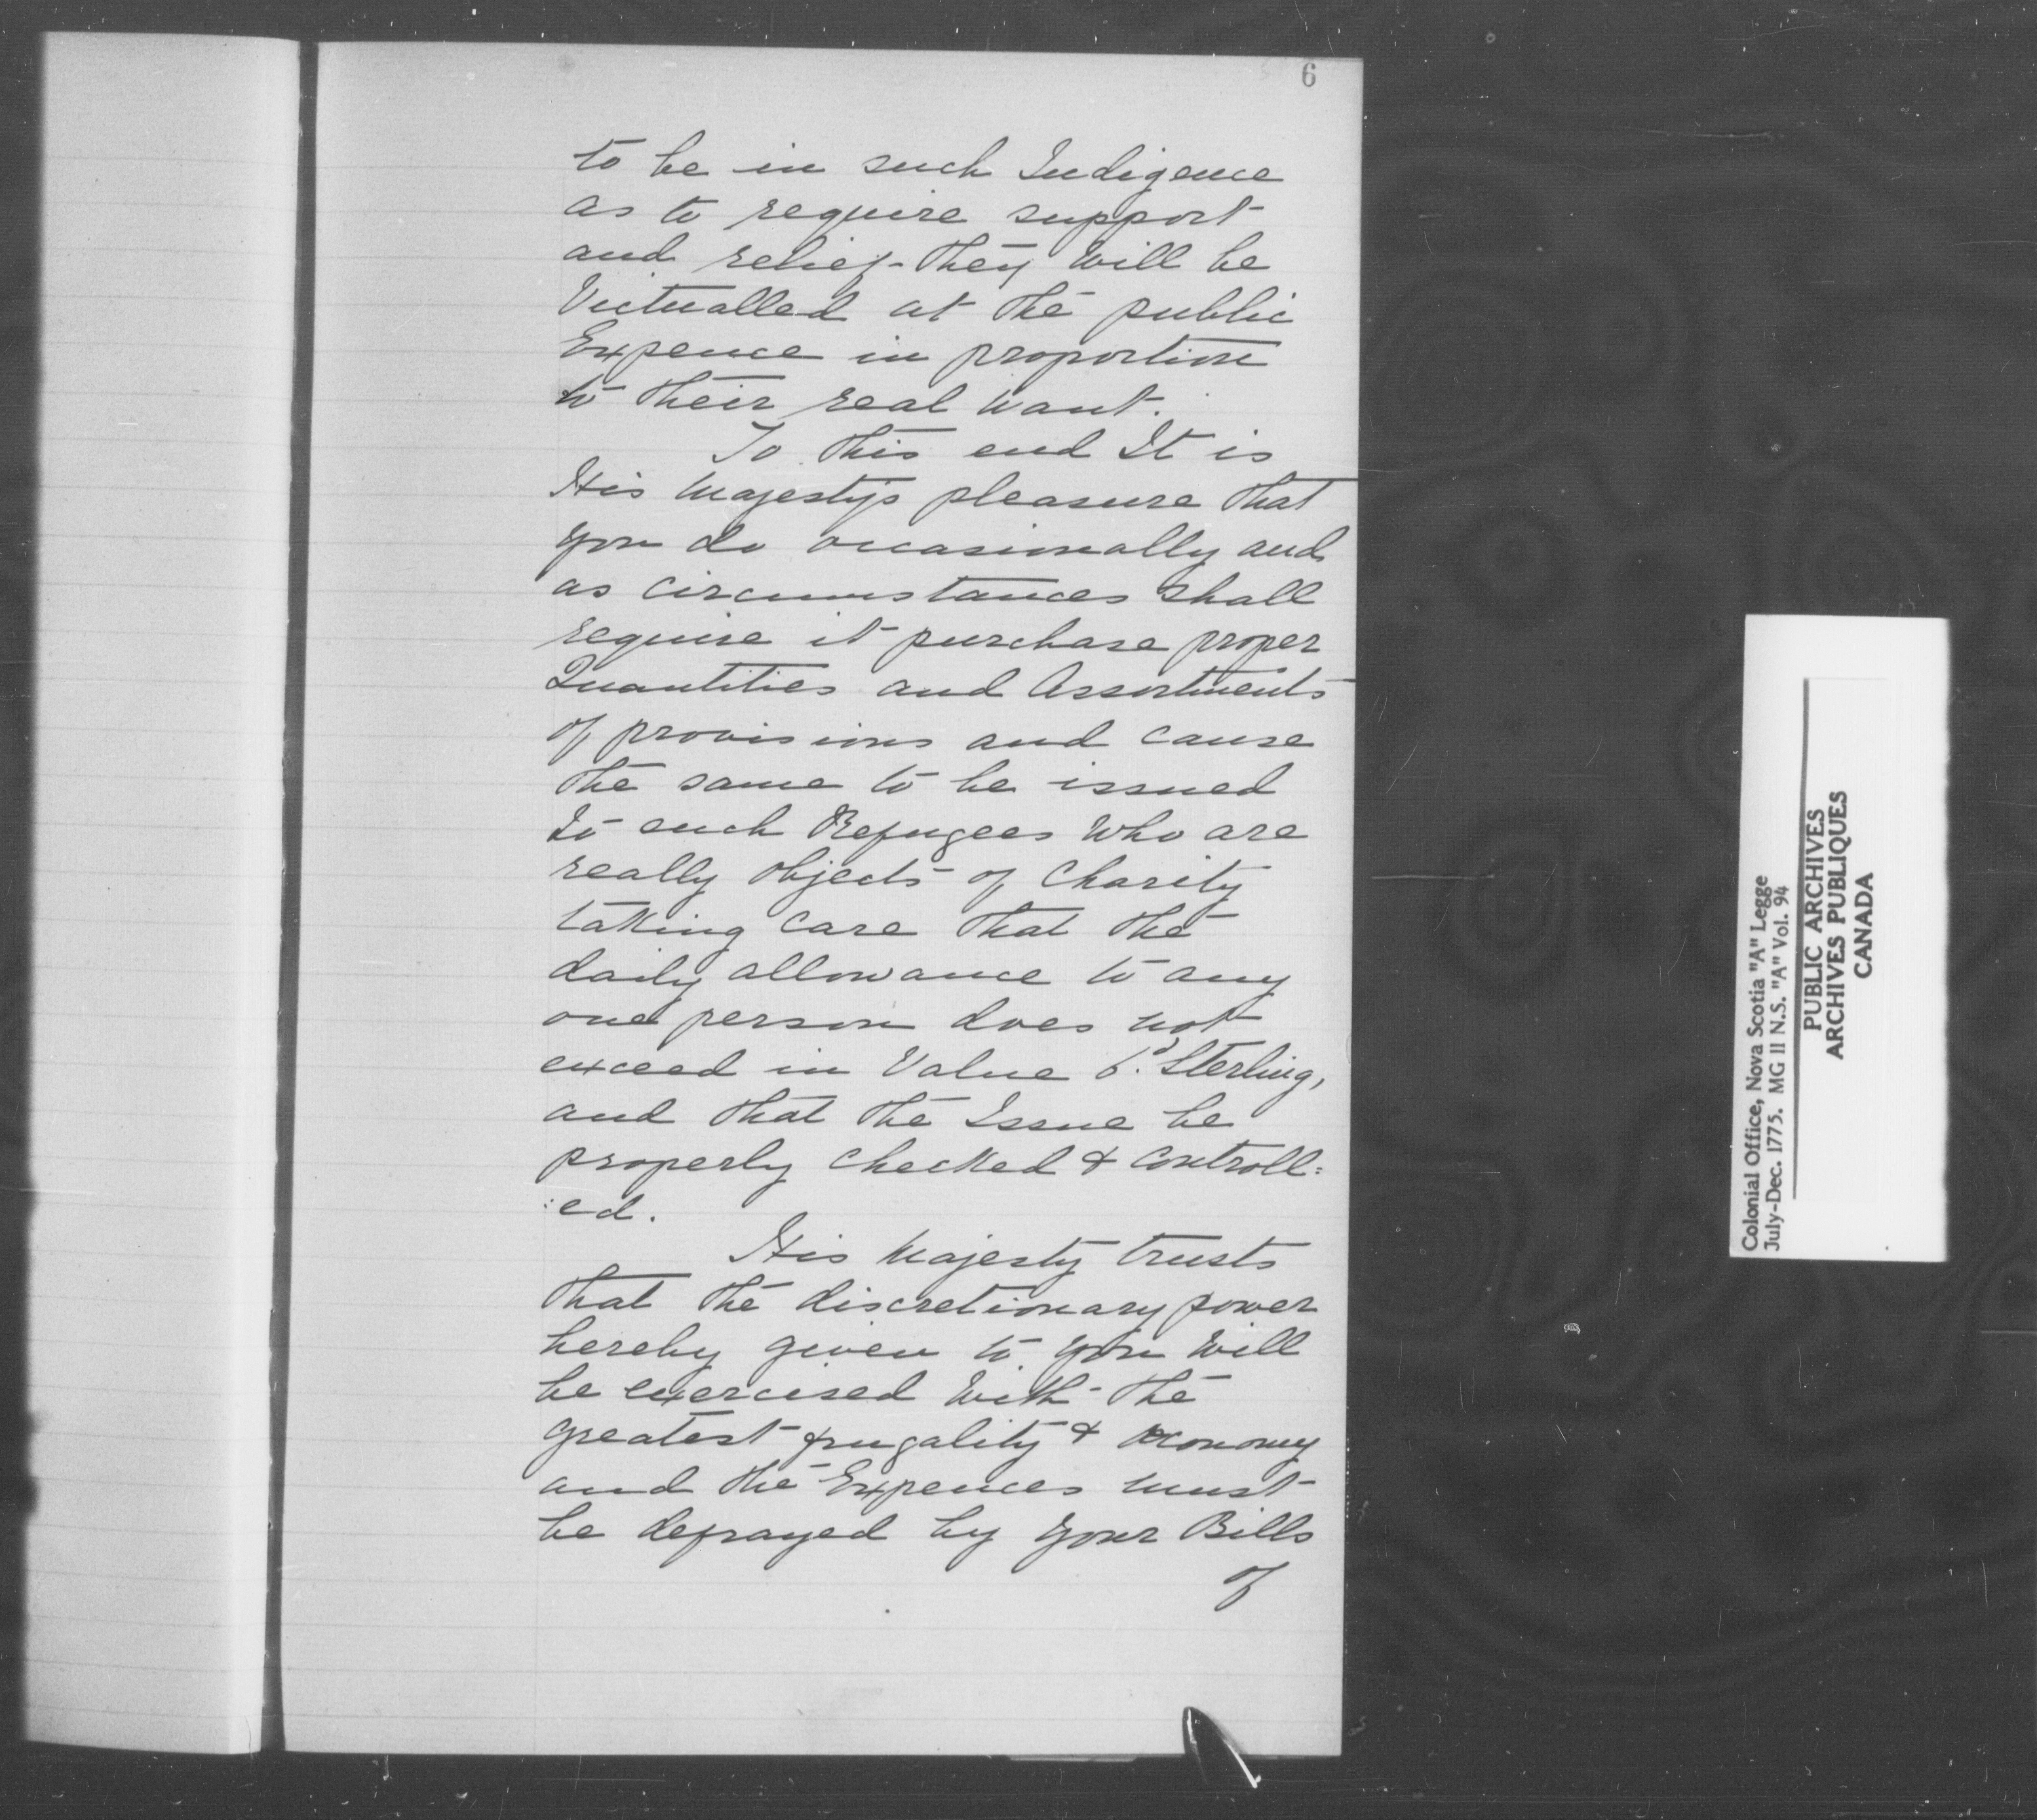 6
to be in such Indigence
as to require support
and relief - they will be
Victualled at the public
Expence in proportion
to their real want.
To this end It is
His Majesty's pleasure that
you do occasionally and
as circumstances shall
require it purchase proper
Quantities and Assortments
of provisions and cause
the same to be issued
to such Refugees who are
really objects of Charity
taking care that the
daily allowance to any
one person does not
exceed in Value 6.d Sterling,
and that the Issue be
properly checked & controll:
:ed.
His Majesty trusts
that the discretionary power
hereby given to you will
be exercised with the
greatest frugality & oeconomy
and the Expences must
be defrayed by your Bills
of
Colonial Office, Nova Scotia "A" Legge
July-Dec. 1775. MG 11 N.S. "A" Vol. 94
PUBLIC ARCHIVES
ARCHIVES PUBLIQUES
CANADA